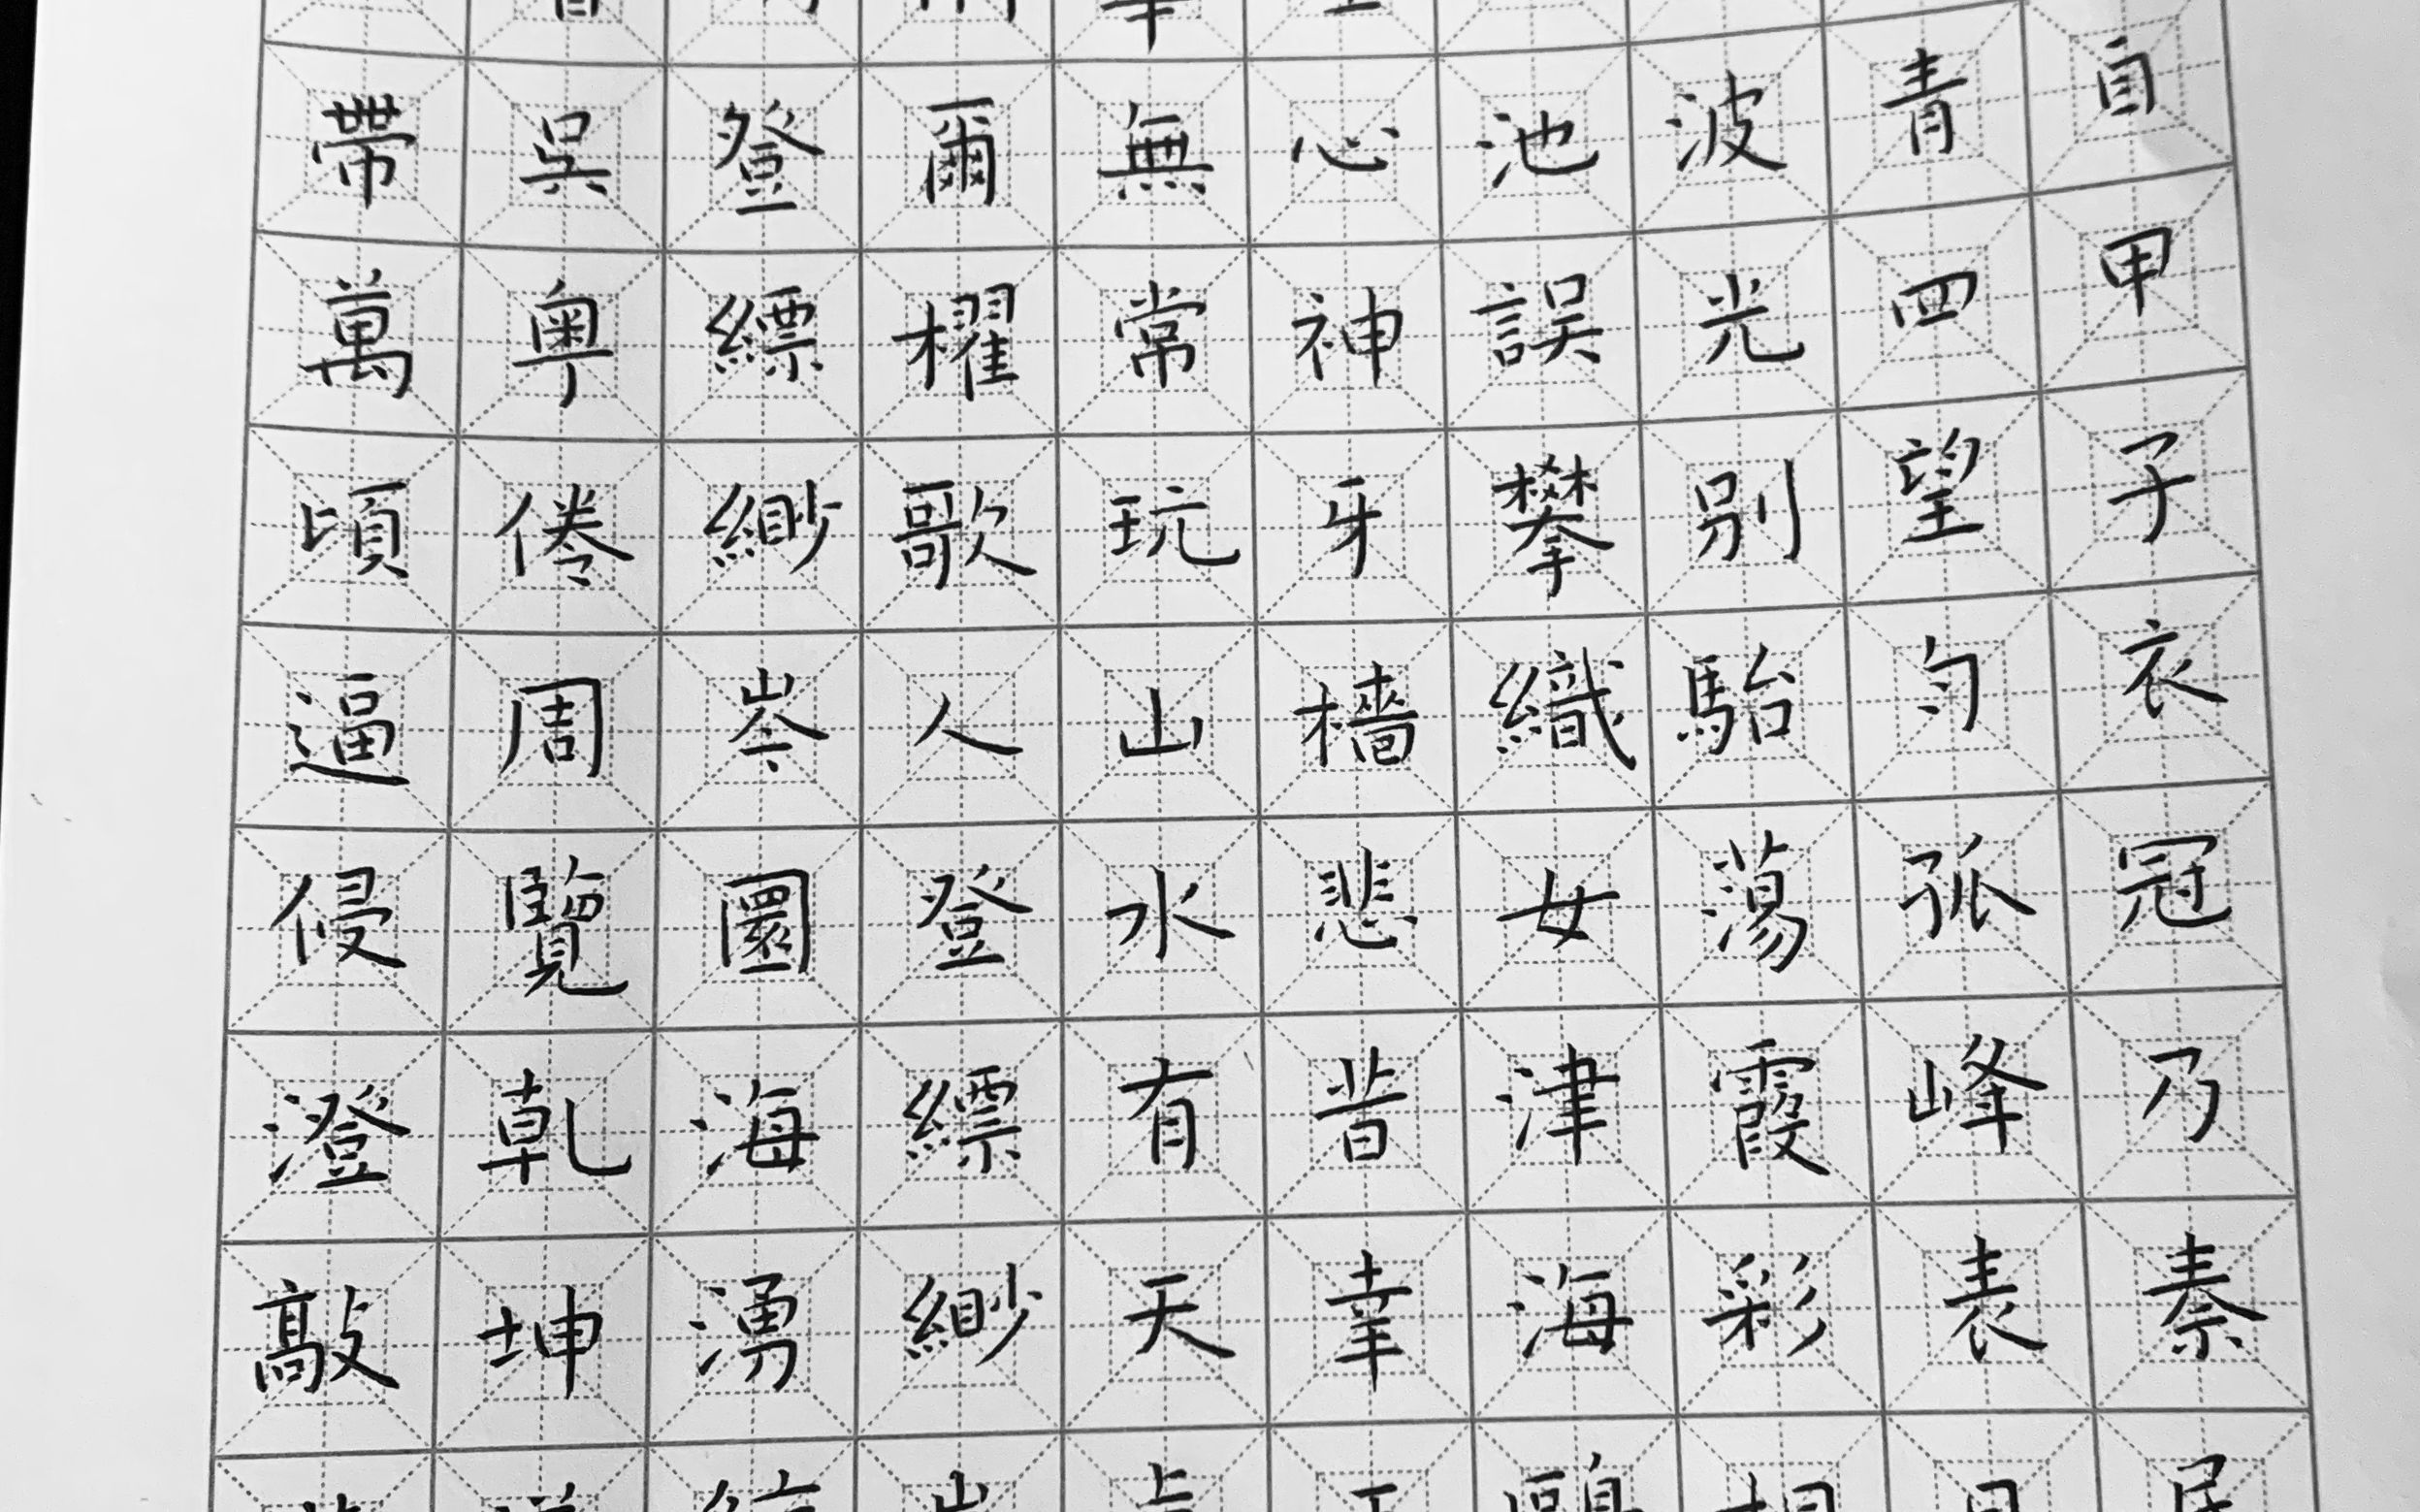 自甲子衣冠乃秦
青四望勻孤峰表
波光别駘蕩霞彩
池誤攀織女津海
心神牙檣悲昔幸
無常玩山水有天
爾櫂歌人登縹緲
登縹緲岑圜海湧
吳粵倦周覽乾坤
帶萬頃逼侵澄敲